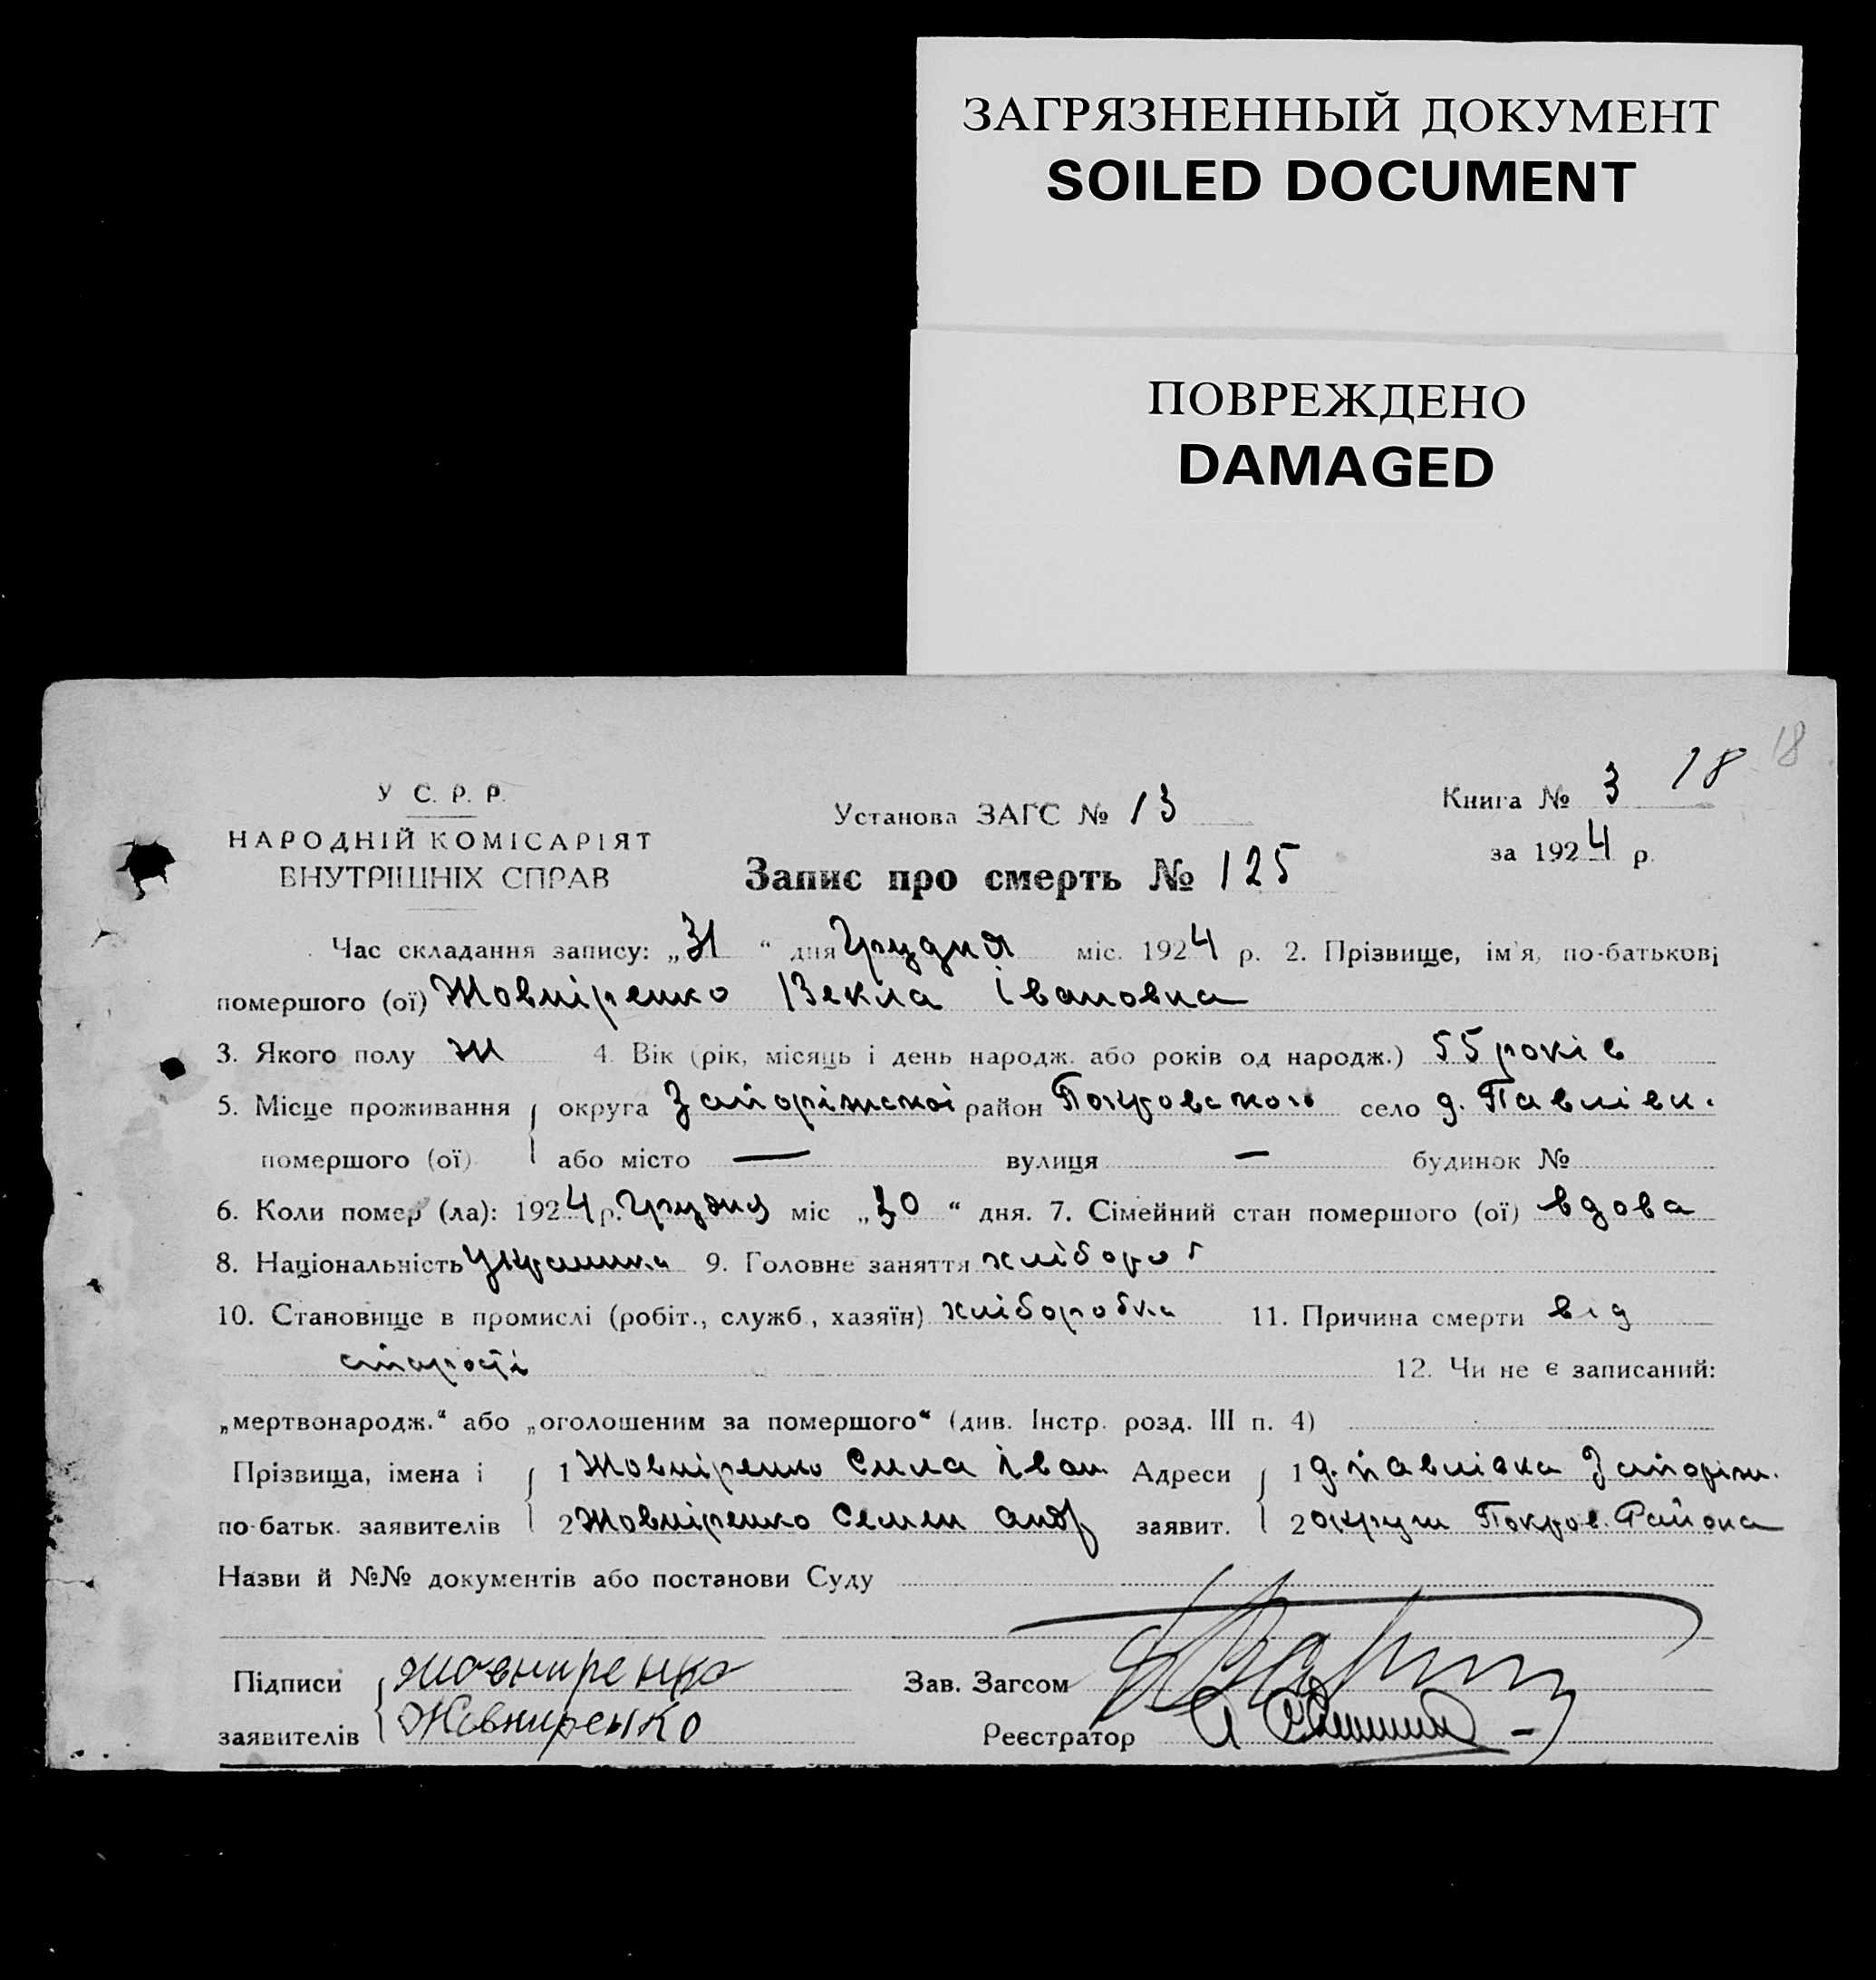 ЗАГРЯЗНЕННЫЙ ДОКУМЕНТ
SOILED DOCUMENT
ПОВРЕЖДЕНО
DAMAGED
18
У С. Р. Р.
НАРОДНІЙ КОМІСАРІЯТ
ВНУТРІШНІХ СПРАВ
Установа ЗАГС № 13
Запис про смерть № 125
Книга № 3 18
за 1924 р.
Час складання запису: „31 “ дня Грудня міс. 1924 р. 2. Прізвище, ім'я, по-батькові
помершого (ої) Жовніренко Векла Івановна
3. Якого полу ж 4. Вік (рік, місяць і день народж. або років од народж.) 55 років
5. Місце проживання округа Запоріжської район Покровського село д. Павлівк.
помершого (ої) або місто — вулиця — будинок №
6. Коли помер (ла): 1924 р. Грудня міс „30 “ дня. 7. Сімейний стан помершого (ої) вдова
8. Національність Украинка 9. Головне заняття хлібороб
10. Становище в промислі (робіт., служб., хазяїн) хліборобка 11. Причина смерти від
старості 12. Чи не є записаний:
„мертвонародж.“ або „оголошеним за помершого“ (див. Інстр. розд. III п. 4)
Прізвища, імена і 1 Жовніренко Сила Іван. Адреси 1 д. Павлівка Запоріж.
по-батьк. заявителів 2 Жовніренко Семен Андр заявит. 2 округи Покров. Района
Назви й №№ документів або постанови Суду
Підписи Жовниренко Зав. Загсом
заявителів Жовниренко Реєстратор